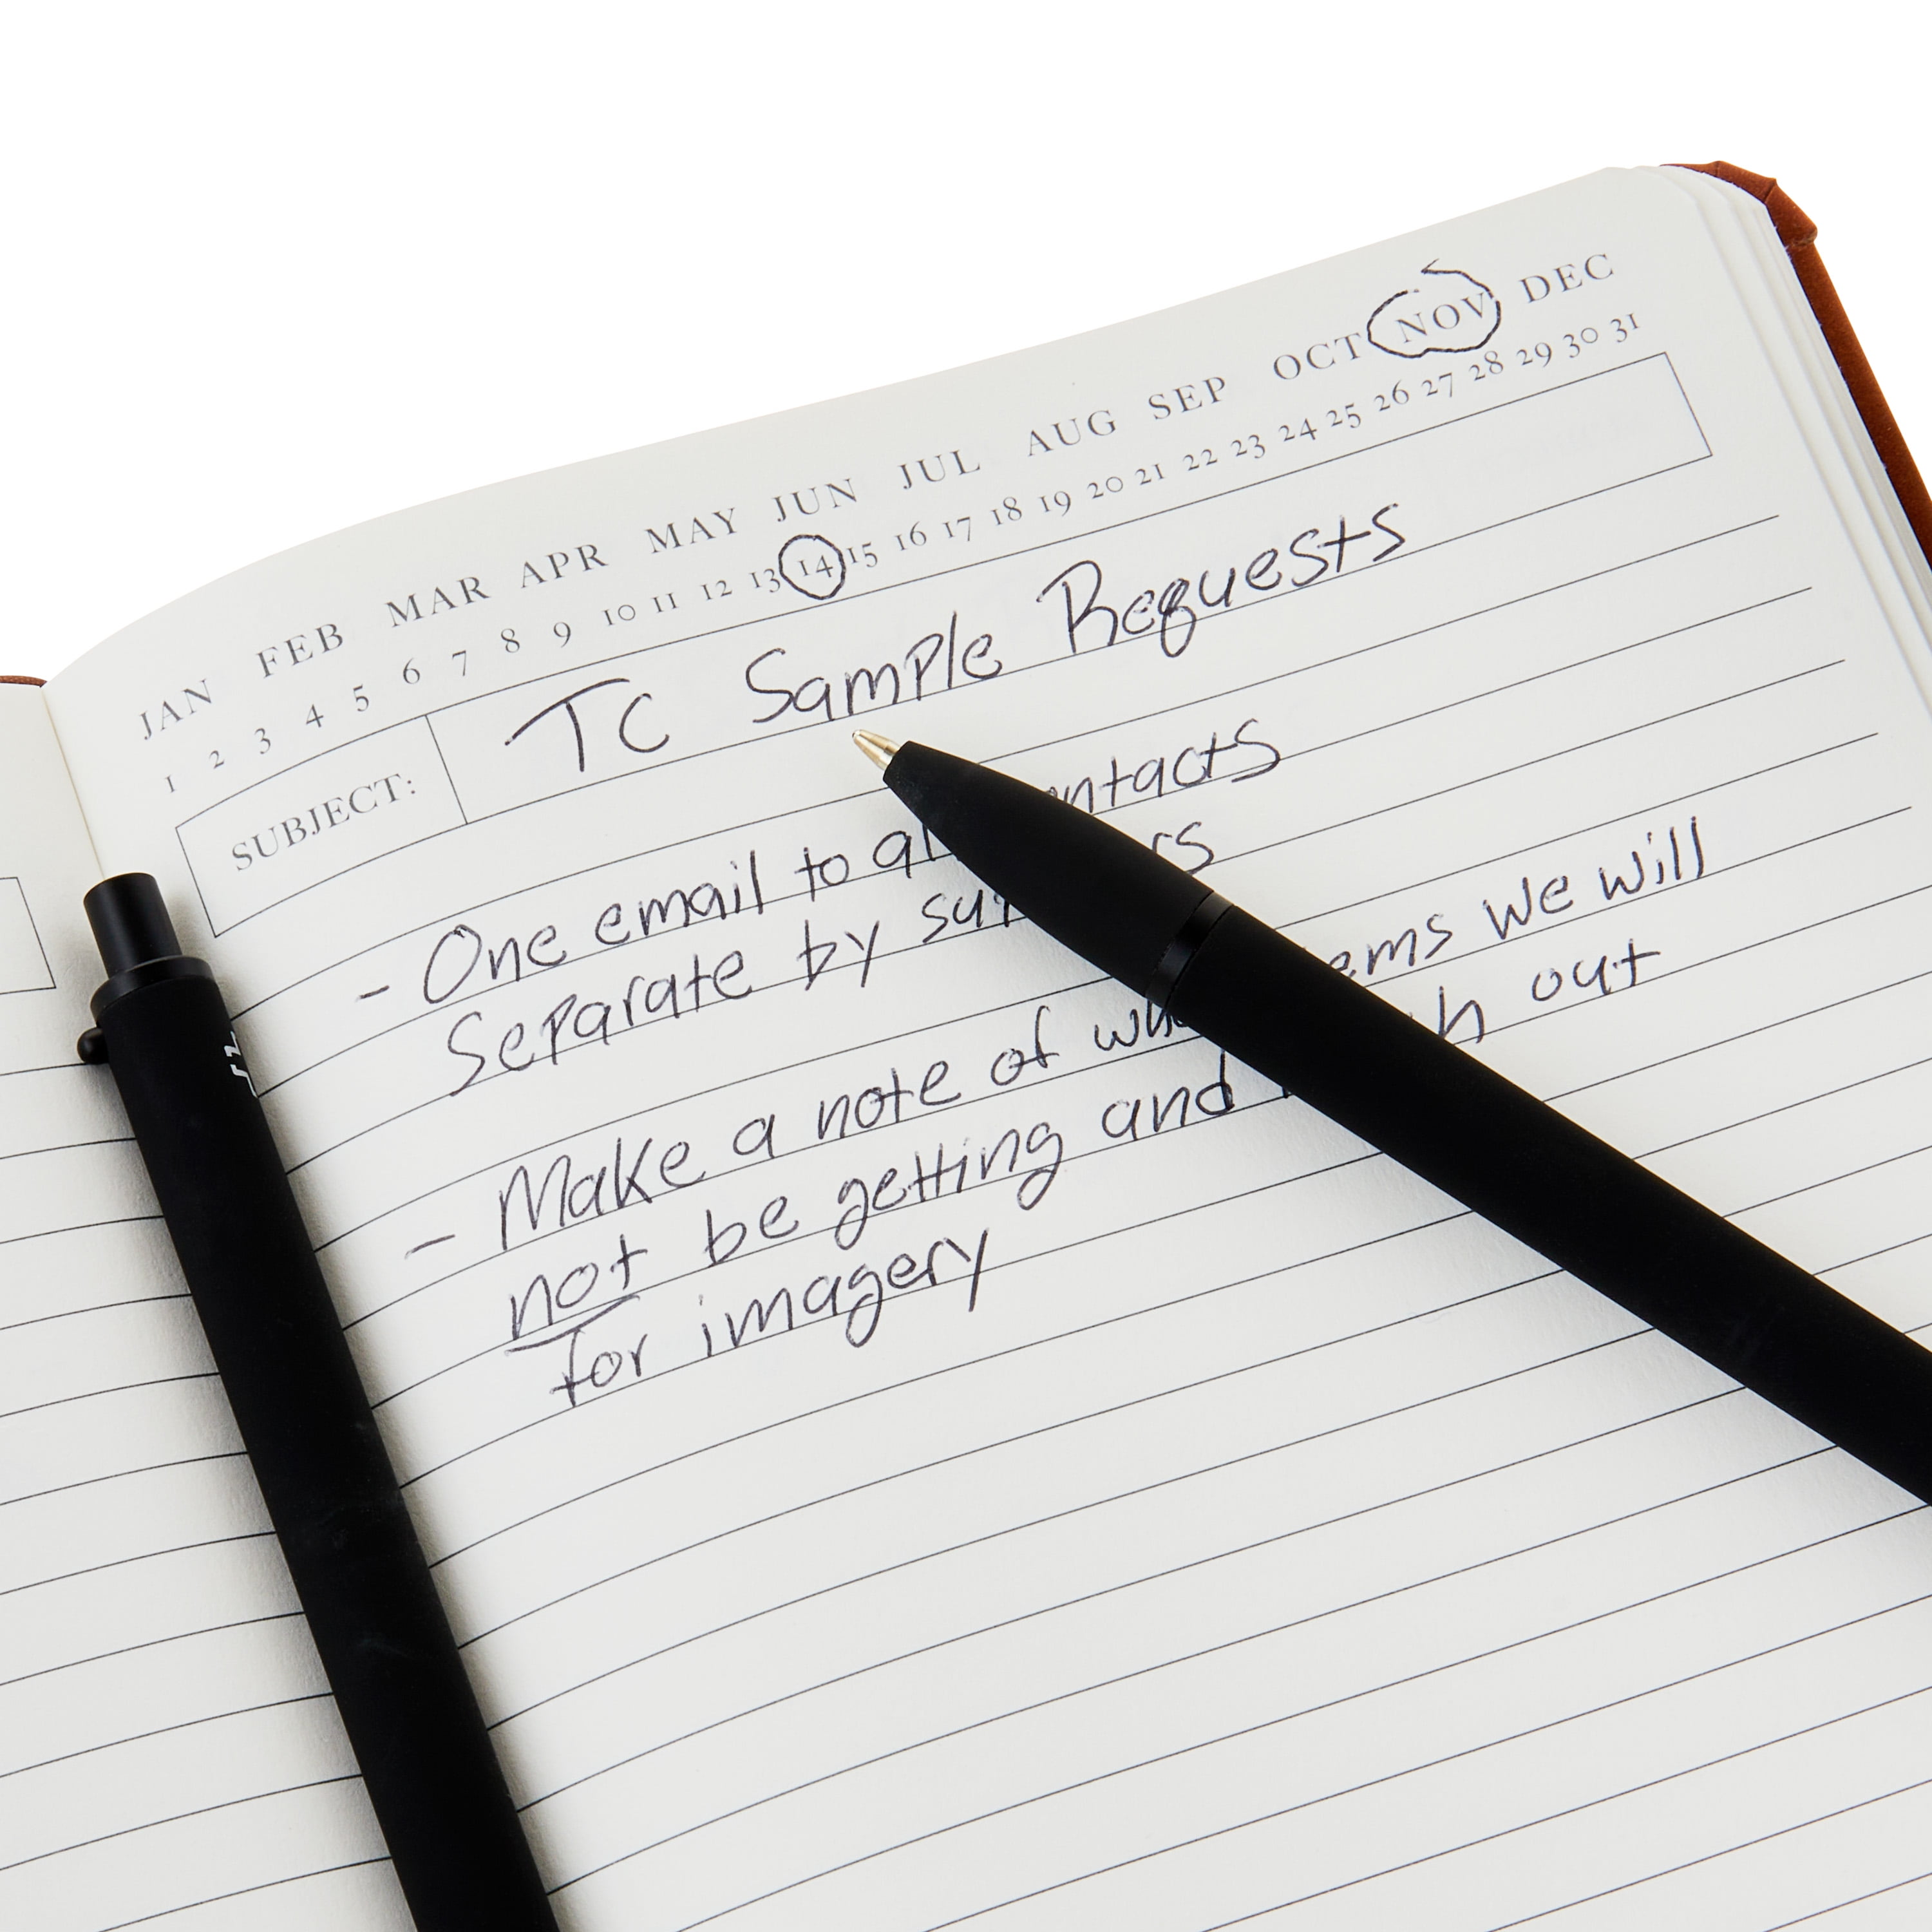 JAN FEB MAR APR MAY JUN JUL AUG SEP OCT NOV DEC
1 2 3 4 5 6 7 8 9 10 11 12 13 14 15 16 17 18 19 20 21 22 23 24 25 26 27 28 29 30 31
SUBJECT: TC Sample Requests
- One email to
Separate by
- Make a note of we will
not be getting and out
for imagery